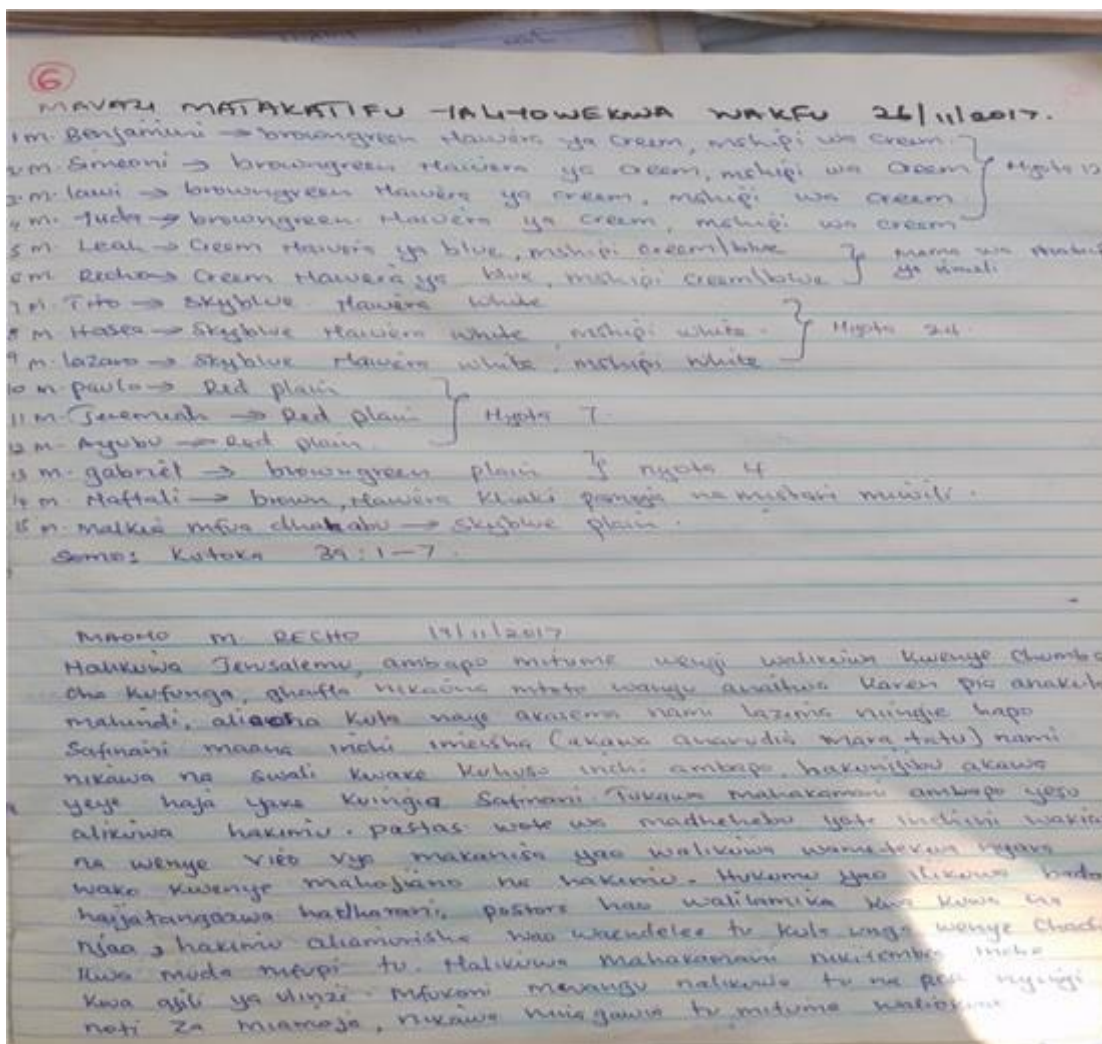 6
MAVAZI MATAKATIFU YALIYOWEKWA WAKFU 26/11/2017.
1 m. Benjamini → browngreen Hawera ya cream, mshipi wa cream.
2 m. Simeoni → browngreen Hawera ya cream, mshipi wa cream Nyota 12
3 m. lawi → browngreen Hawera ya cream, mshipi wa cream
4 m. Juda → browngreen. Hawera ya cream, mshipi wa cream
5 m. Leah → Cream Hawera ya blue, mshipi cream/blue mama wa
6 m. Recho → Cream Hawera ya blue, mshipi cream/blue ya
7 m. Tito → Skyblue Hawera white
8 m Hosea → Skyblue Hawera white, mshipi white. Nyota 24
9 m. lazaro → Skyblue Hawera white, mshipi white
10 m. paulo → Red plain
11 m. Jeremiah → Red plain Nyota 7.
12 m. Ayubu → Red plain.
13 m. gabriel → browngreen plain nyota 4
14 m. Naftali → brown, Hawera khaki pamoja na mistari miwili.
15 m. malkia mfua dhahabu → Skyblue plain.
Somo: Kutoka 39:1-7.
MAONO M. RECHO 19/11/2017
Nalikuwa Jerusalemu, ambapo mitume wengi walikuwa kwenye Chumba
cha kufunga, ghafla nikaona mtoto wangu anaitwa Karen pia
mahindi, aliacha kula naye akasema nami lazima niingie hapo
Safinani maana inchi imeisha (akawa anarudia mara tatu) nami
nikawa na swali kwake kuhusu inchi ambapo, hakunijibu akawa
yeye haja yake kuingia Safinani. Tukawa mahakamani ambapo yeso
alikuwa hakimu. pastas wote wa madhehebu yote inchini
na wenye vieo vya makanisa yao walikuwa wametekwa nyara
wako kwenye mahojiano na hakimu. Hukumu yao ilikuwa bado
haijatangazwa hadharani, pastors hao walilamika kuwa na
njaa, hakimu aliamurisha wao waendelee tu kula unga wenye
kwa muda mfupi tu. Nalikuwa mahakamani nikitembea
kwa ajili ya ulinzi. Mfukoni mwangu nalikuwa tu na pesa nyingi
noti za miamoja, nikawa tu mitume